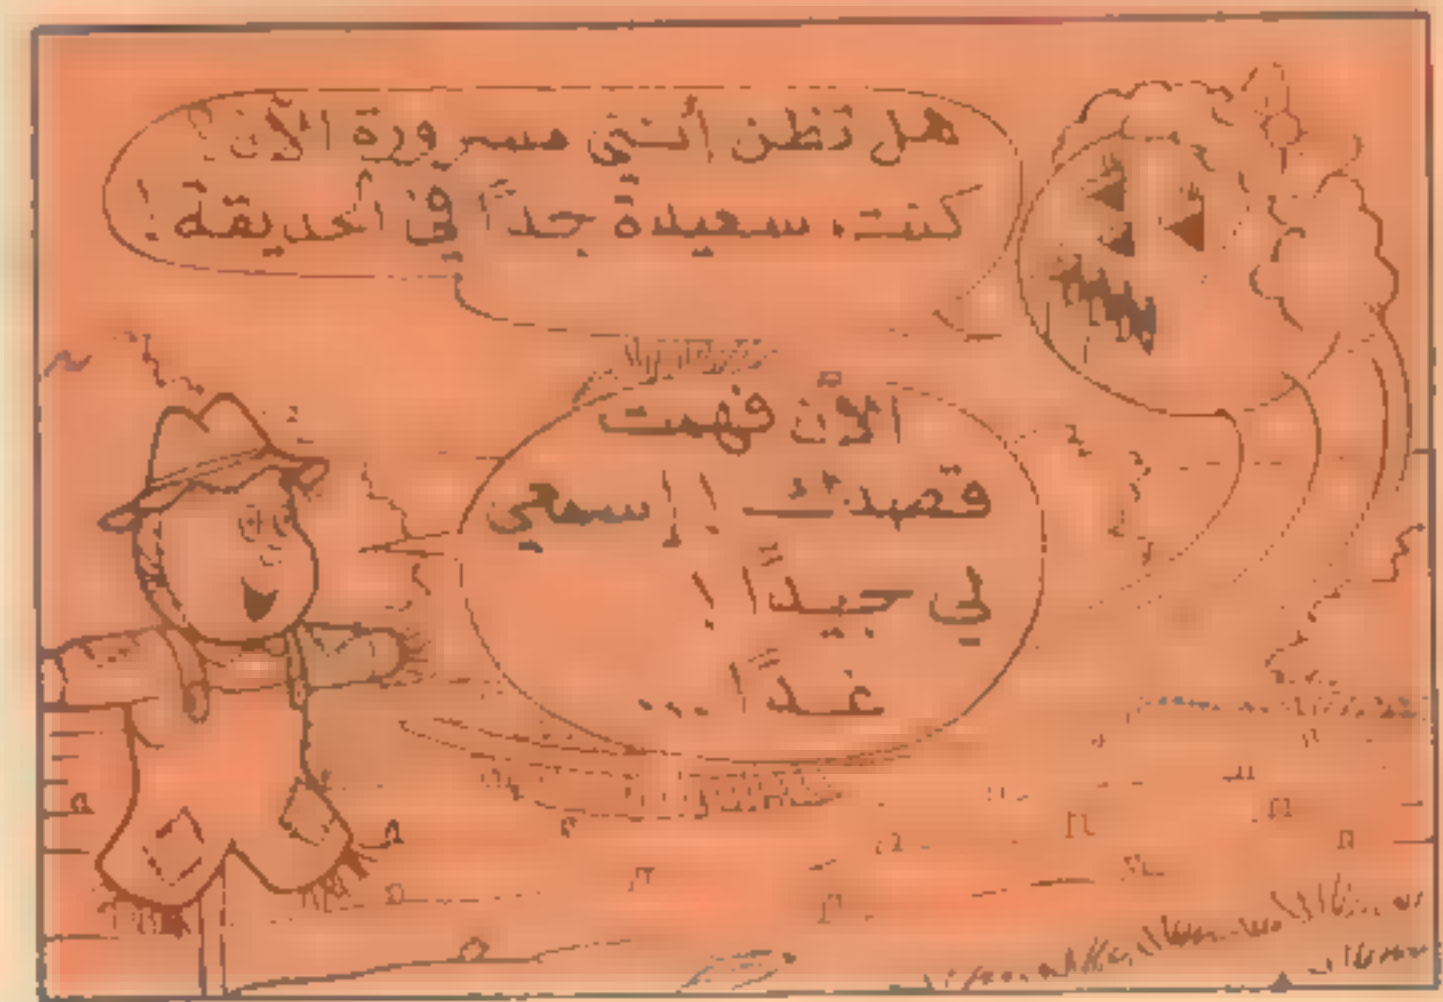 هل تظن أنني مسرورة الآن؟
كنت سعيدة جداً في الحديقة!
الآن فهمت
قصدك! إسمعي
لي جيداً!
غداً...